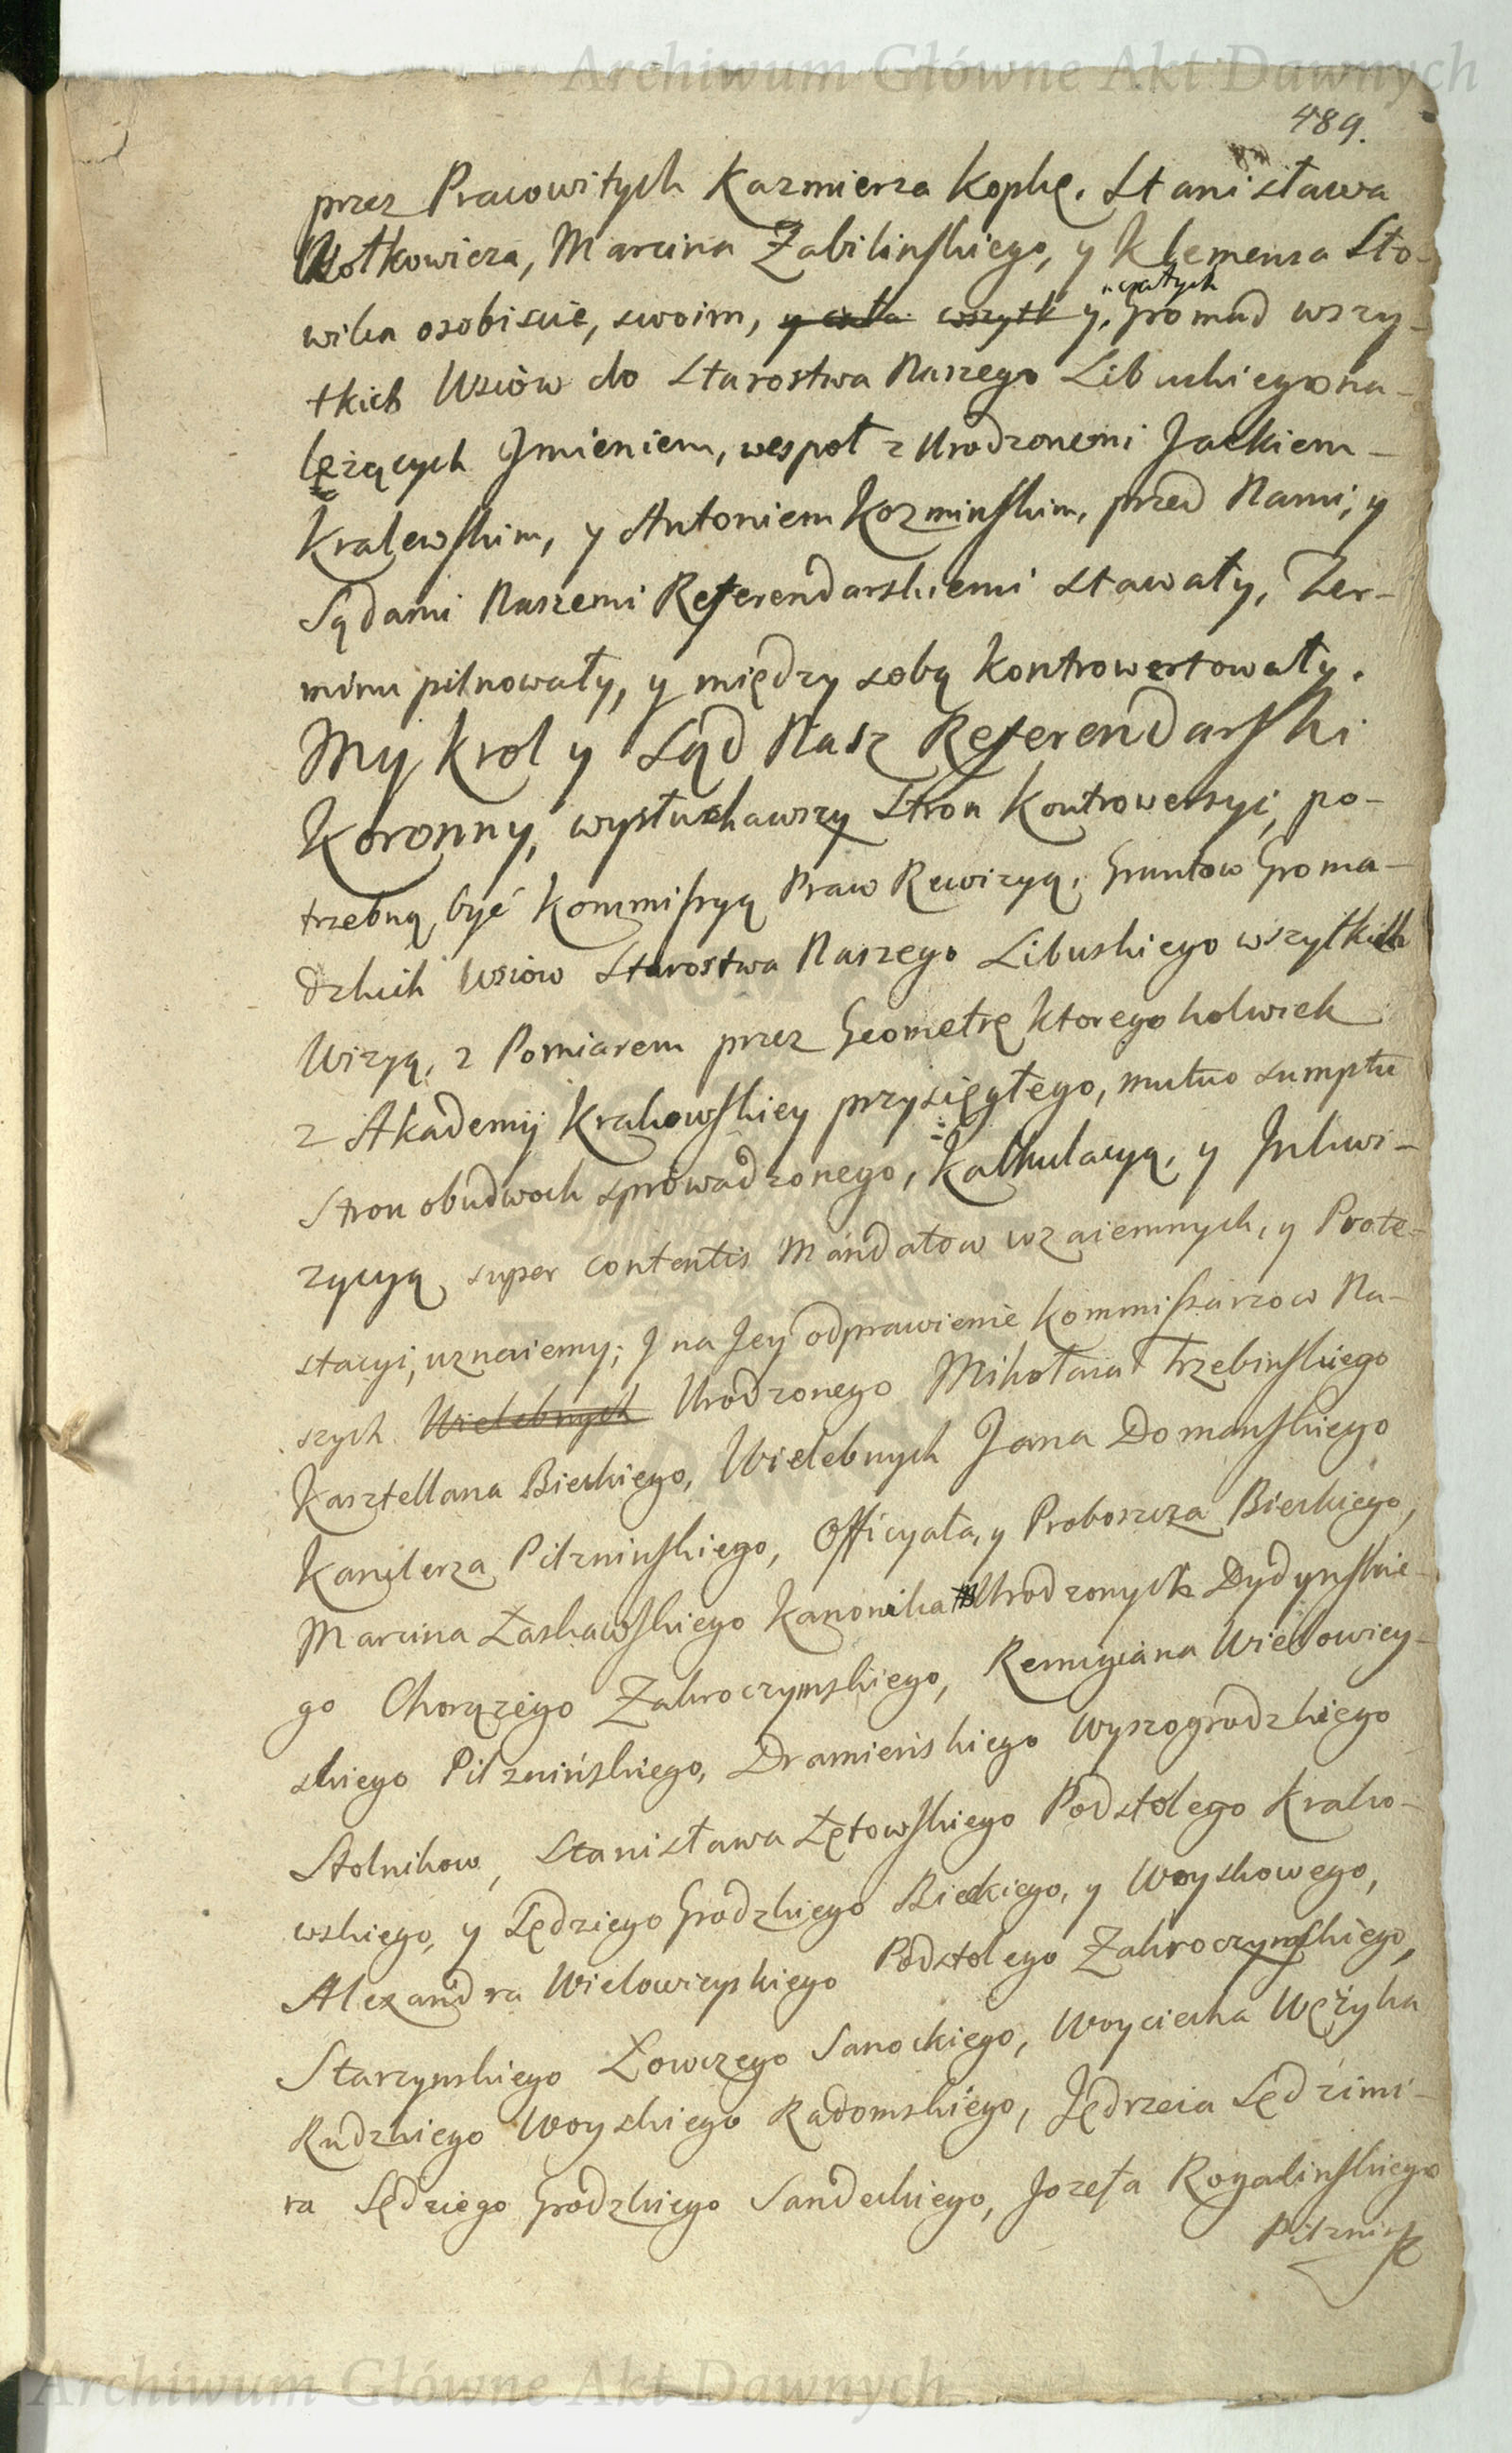 Archiwum Główne Akt Dawnych
489.
przez Pracowitych Kazmierza Kopkę. Stanisława
Wotkowicza, Marcina Zabilinskiego, y Klemensa Sto-
wika osobiscie, swoim, y cała wszytk y, całych Gromad wszy-
tkich Wsiow do Starostwa Naszego Libuskiego na-
lężących Jmieniem, wespoł z Urodzonemi Jackiem
Kralewskim, y Antoniem Kozminskim, przed Nami, y
Sądami Naszemi Referendarskiemi stawały, Ter-
minu pilnowały, y między sobą kontrowertowały.
My Krol y Sąd Nasz Referendarski
Koronny, wysłuchawszy Stron Kontrowersyi, po-
trzebną być Kommissyą Praw Rewizyą, Gruntow Groma-
dzkich Wsiow Starostwa Naszego Libuskiego wszytkich
Wizyą, z Pomiarem przez Geometrę ktoregokolwiek
z Akademij Krakowskiey przysięgłego, mutuo sumptu
Stron obudwoch sprowadzonego, Kalkulacyą, y Jnkwi-
zycyą super contentis Mandatow wzaiemnych, y Prote-
stacyi, uznaiemy; J na Jey odprawienie Kommissarzow Na-
szych Wielebnych Urodzonego Mikołaia Trzebinskiego
Kasztellana Bieckiego, Wielebnych Jana Domanskiego
Kanclerza Pilzninskiego, Officyała, y Proboszcza Bieckiego,
Marcina Łaskawskiego Kanonika Urodzonych Dydynskie-
go Chorązego Zakroczymskiego, Remigiana Wielowiey-
skiego Pilznińskiego, Dramieńskiego Wyszogrodzkiego
Stolnikow, Stanisława Łętowskiego Podstolego Krako-
wskiego, y Sędziego Grodzkiego Bieckiego, y Woyskowego,
Alexandra Wielowieyskiego Podstolego Zakroczymskiego,
Starzynskiego Łowczego Sanockiego, Woyciecha Wężyka
Rudzkiego Woyskiego Radomskiego, Jędrzeia Sędzimi-
ra Sędziego Grodzkiego Sandeckiego, Jozefa Rogalinskiego
Pilznisk
Archiwum Główne Akt Dawnych